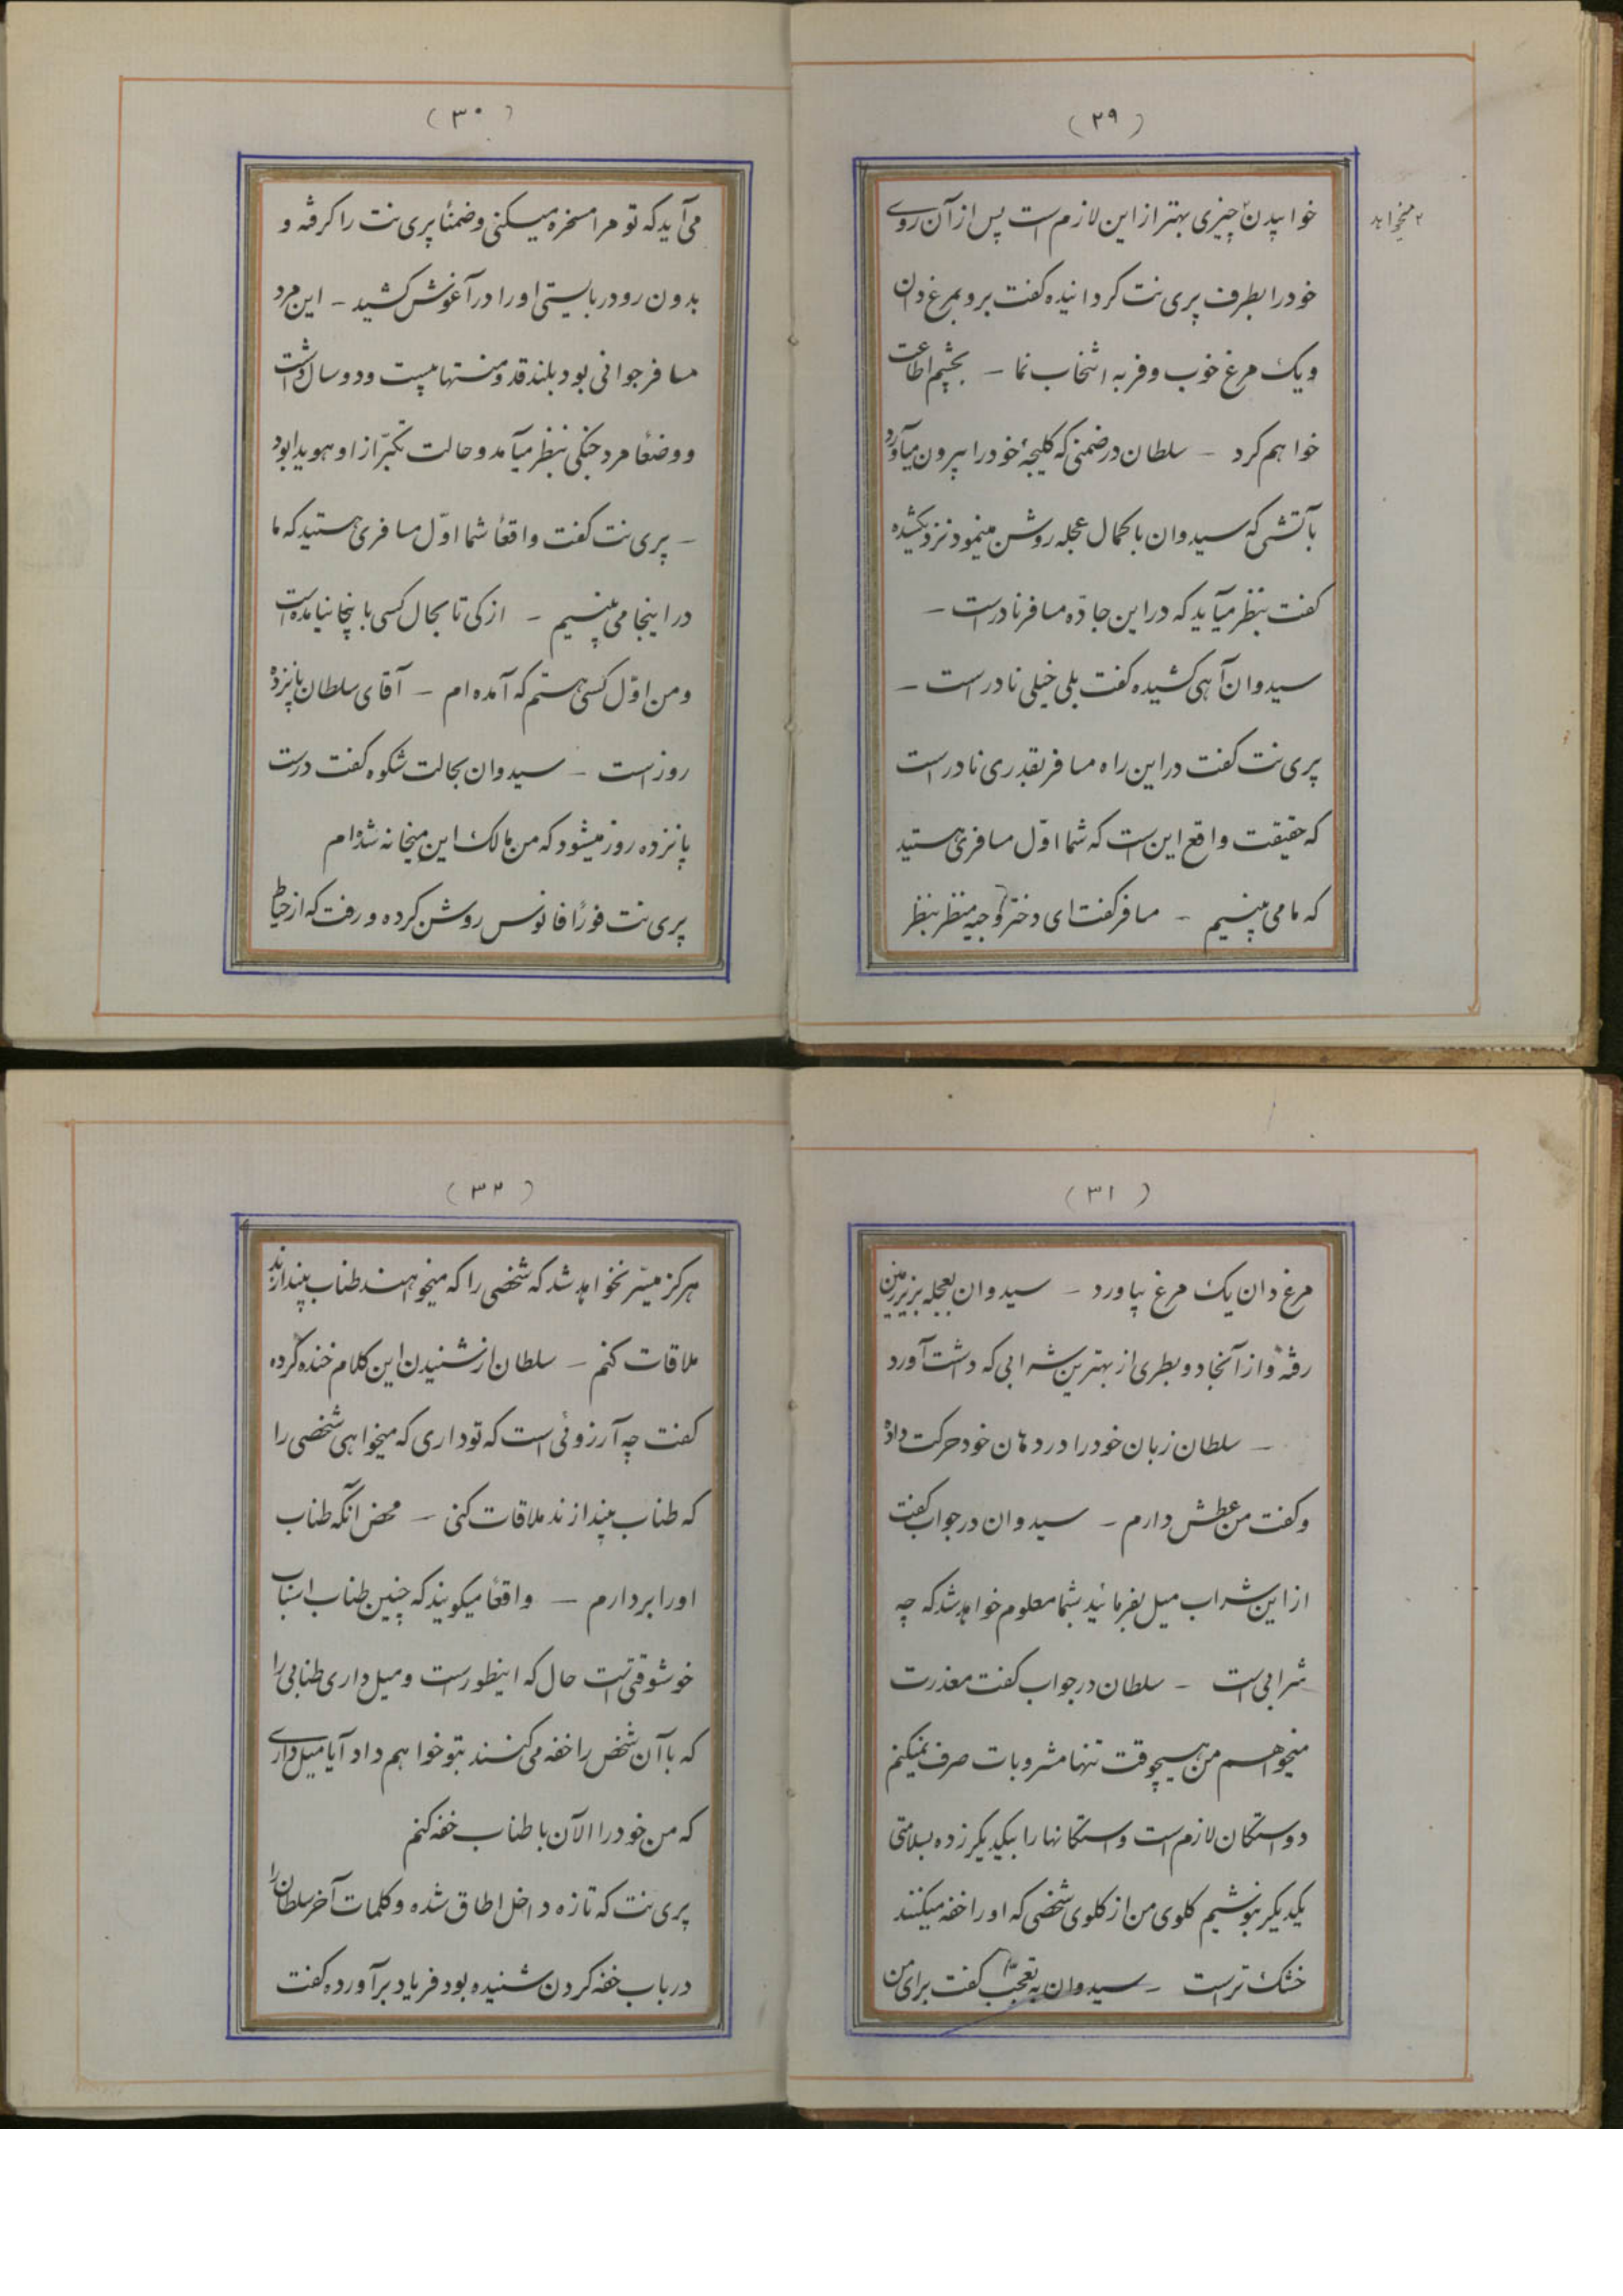 (۲۹)
۲ میخواهید
خوابیدن چیزی بهتر از این لازم است پس از آن روی
خود را بطرف پری نت کردانیده کفت برو بمرغ دان
و یک مرغ خوب و فربه انتخاب نما – بچشم اطاعت
خواهم کرد – سلطان در ضمنی که کلیجهٔ خود را بیرون میآورد
بآتشی که سیدوان با کمال عجله روشن مینمود نزدیک شده
کفت بنظر میآید که در این جادّه مسافر نادر است –
سیدوان آهی کشیده کفت بلی خیلی نادر است –
پری نت کفت در این راه مسافر بقدری نادر است
که حقیقت واقع این است که شما اوّل مسافری هستید
که ما می بینیم – مسافر کفت ای دختر وجیه منظر بنظر
(۳۰)
می آید که تو مرا مسخره میکنی و ضمناً پری نت را کرفته و
بدون رودربایستی او را در آغوش کشید – این مرد
مسافر جوانی بود بلند قد و منتها بیست و دو سال داشت
و وضعاً مرد جنکی بنظر میآمد و حالت تکبّر از او هویدا بود
– پری نت کفت واقعاً شما اوّل مسافری هستید که ما
در اینجا می بینیم – از کی تا بحال کسی باینجا نیامده است
و من اوّل کسی هستم که آمده ام – آقای سلطان پانزده
روز است – سیدوان بحالت شکوه کفت درست
پانزده روز میشود که من مالک این میخانه شده ام
پری نت فوراً فانوس روشن کرده و رفت که از حیاط
(۳۱)
مرغ دان یک مرغ بیاورد – سیدوان بعجله بزیر زمین
رفته و از آنجا دو بطری از بهترین شرابی که داشت آورد
– سلطان زبان خود را در دهان خود حرکت داده
و کفت من عطش دارم – سیدوان در جواب کفت
از این شراب میل بفرمائید بشما معلوم خواهد شد که چه
شرابی است – سلطان در جواب کفت معذرت
میخواهم من هیچوقت تنها مشروبات صرف نمیکنم
دو استکان لازم است و استکانها را بیکدیکر زده بسلامتی
یکدیکر بنوشیم کلوی من از کلوی شخصی که او را خفه میکنند
خشک تر است – سیدوان به تعجّب کفت برای من
(۳۲)
هرکز میسّر نخواهد شد که شخصی را که میخواهند طناب بیندازند
ملاقات کنم – سلطان از شنیدن این کلام خنده کرده
کفت چه آرزوئی است که تو داری که میخواهی شخصی را
که طناب بیندازند ملاقات کنی – محض آنکه طناب
او را بردارم – واقعاً میکویند که چنین طناب اسباب
خوشوقتی است حال که اینطور است و میل داری طنابی را
که با آن شخص را خفه می کنند بتو خواهم داد آیا میل داری
که من خود را الآن با طناب خفه کنم
پری نت که تازه داخل اطاق شده و کلمات آخر سلطان را
در باب خفه کردن شنیده بود فریاد برآورده کفت